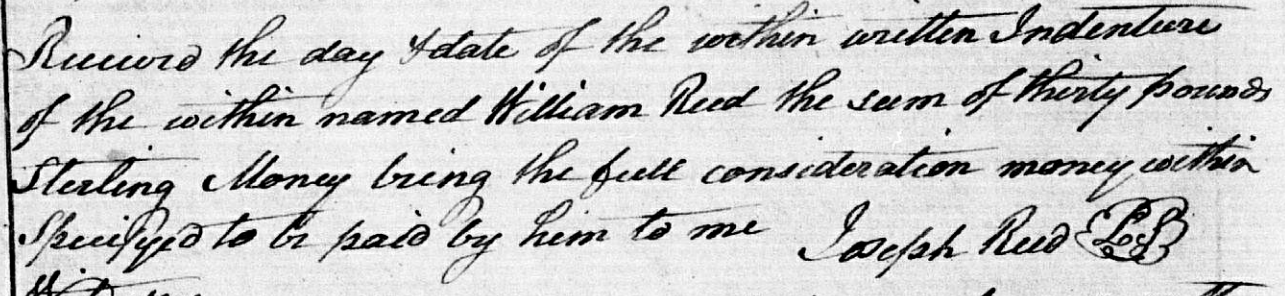 Received the day & date of the within written Indenture
of the within named William Reed the sum of thirty pounds
Sterling Money being the full consideration money within
Specifyed to be paid by him to me Joseph Reed LS